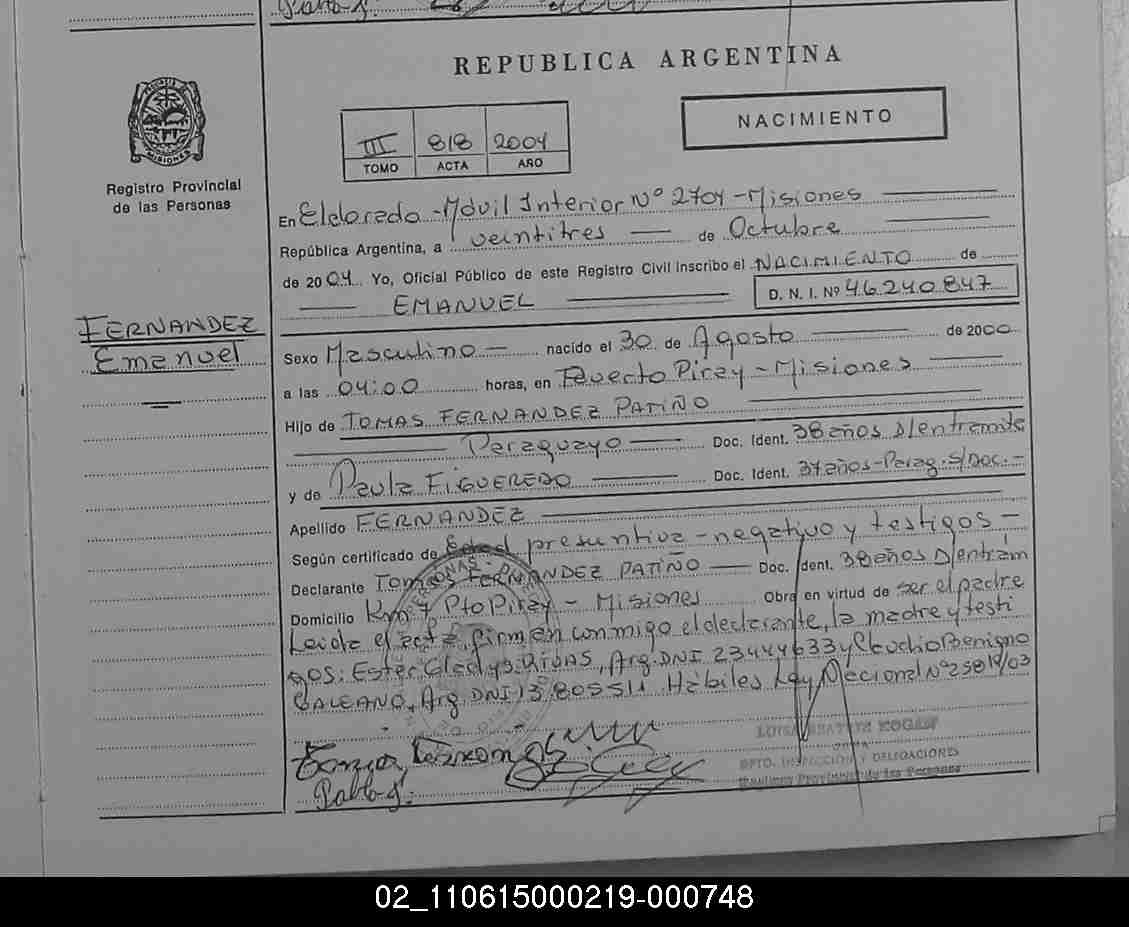 REPUBLICA ARGENTINA
PROVINCIA DE MISIONES
Registro Provincial
de las Personas
III 818 2004
TOMO ACTA AÑO
NACIMIENTO
En Eldorado - Móvil Interior Nº 2704 - Misiones
República Argentina, a veintitres de Octubre
de 2004 Yo, Oficial Público de este Registro Civil Inscribo el NACIMIENTO de
EMANUEL D. N. I. Nº 46.240.847
FERNANDEZ
Emanuel
Sexo Masculino - nacido el 30 de Agosto de 2000
a las 04:00 horas, en Puerto Piray - Misiones
Hijo de TOMAS FERNANDEZ PATIÑO
Paraguayo Doc. Ident. 38 años D/entramite
y de Paula FIGUEREDO Doc. Ident. 37 años - Parag. S/Doc. -
Apellido FERNANDEZ
Según certificado de Edad presuntiva - negativo y testigos -
Declarante Tomas FERNANDEZ PATIÑO Doc. Ident. 38 años D/entrám
Domicilio Km 4 Pto Piray - Misiones Obra en virtud de ser el padre
Leida el acta, firman conmigo el declarante, la madre y testi
gos: Ester Gladys RIVAS, Arg. DNI 23444633 y Claudio Benigno
GALEANO, Arg. DNI 13.805.511 Hábiles Ley Nacional Nº 25819/03
DPTO. INSPECCION Y DELEGACIONES
Registro Provincial de las Personas
02_110615000219-000748